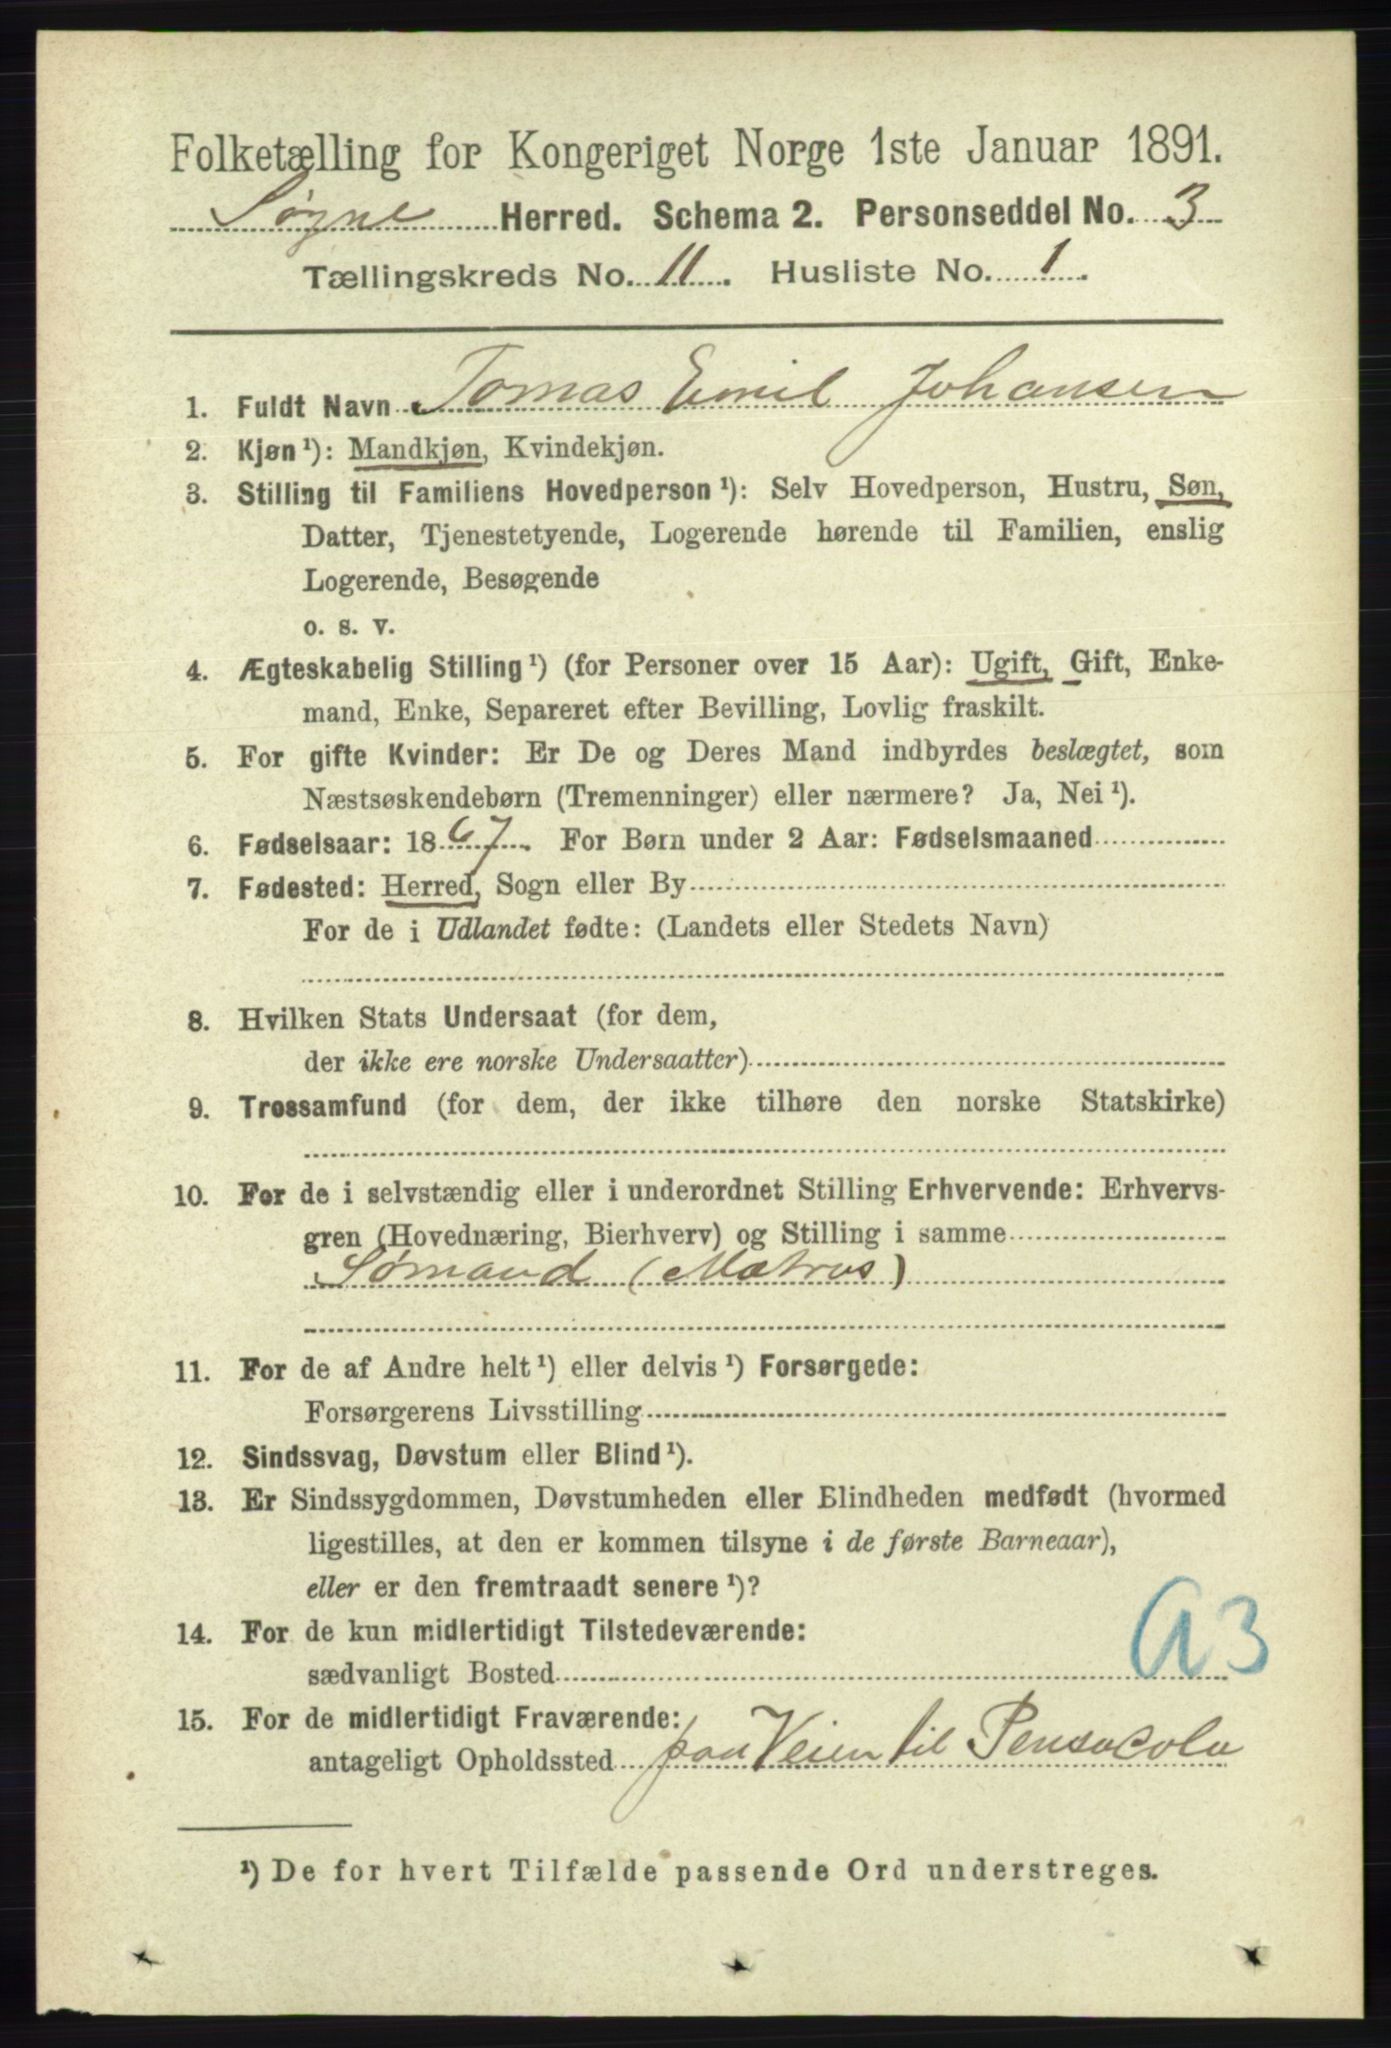 Folketælling for Kongeriget Norge 1ste Januar 1891.
Søgne Herred. Schema 2. Personseddel No. 3
Tællingskreds No. 11. Husliste No. 1.
1. Fuldt Navn Tomas Emil Johansen
2. Kjøn¹): Mandkjøn, Kvindekjøn.
3. Stilling til Familiens Hovedperson¹): Selv Hovedperson, Hustru, Søn,
Datter, Tjenestetyende, Logerende hørende til Familien, enslig
Logerende, Besøgende
o. s. v.
4. Ægteskabelig Stilling¹) (for Personer over 15 Aar): Ugift, Gift, Enke-
mand, Enke, Separeret efter Bevilling, Lovlig fraskilt.
5. For gifte Kvinder: Er De og Deres Mand indbyrdes beslægtet, som
Næstsøskendebørn (Tremenninger) eller nærmere? Ja, Nei¹).
6. Fødselsaar: 1867. For Børn under 2 Aar: Fødselsmaaned
7. Fødested: Herred, Sogn eller By
For de i Udlandet fødte: (Landets eller Stedets Navn)
8. Hvilken Stats Undersaat (for dem,
der ikke ere norske Undersaatter)
9. Trossamfund (for dem, der ikke tilhøre den norske Statskirke)
10. For de i selvstændig eller i underordnet Stilling Erhvervende: Erhvervs-
gren (Hovednæring, Bierhverv) og Stilling i samme
Sømand (Matros)
11. For de af Andre helt¹) eller delvis¹) Forsørgede:
Forsørgerens Livsstilling
12. Sindssvag, Døvstum eller Blind¹).
13. Er Sindssygdommen, Døvstumheden eller Blindheden medfødt (hvormed
ligestilles, at den er kommen tilsyne i de første Barneaar),
eller er den fremtraadt senere¹)?
14. For de kun midlertidigt Tilstedeværende:
sædvanligt Bosted
a3
15. For de midlertidigt Fraværende:
antageligt Opholdssted paa Veien til Pensacola
¹) De for hvert Tilfælde passende Ord understreges.